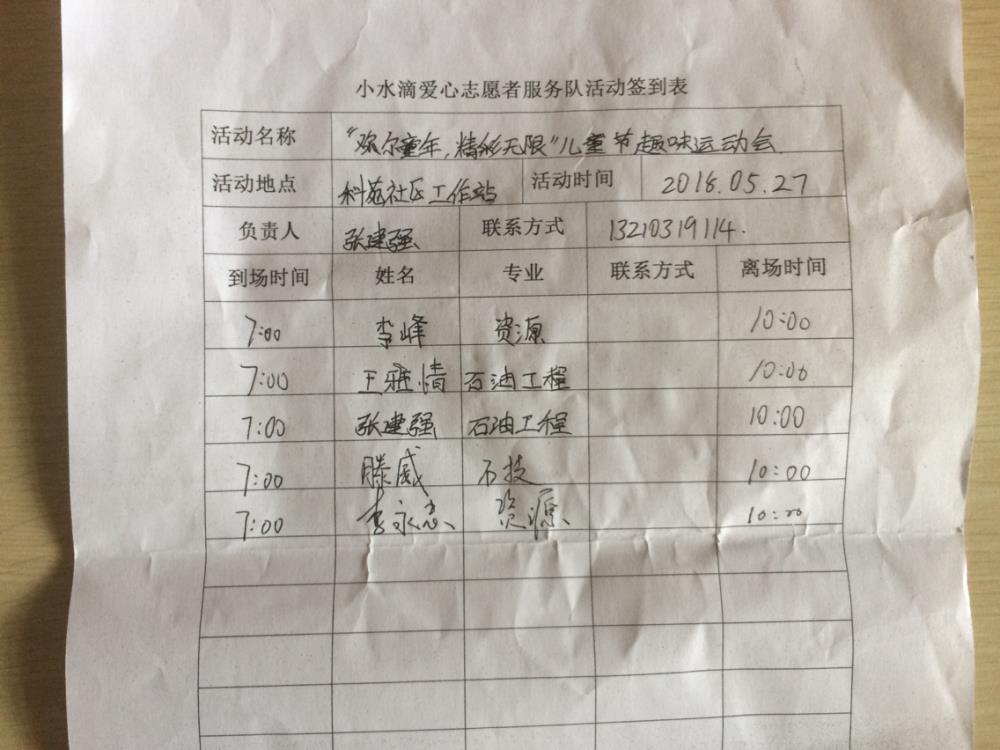 小水滴爱心志愿者服务队活动签到表
活动名称 “欢尔童年,精彩无限”儿童节趣味运动会
活动地点 科苑社区工作站 活动时间 2018.05.27
负责人 张建强 联系方式 13210319114.
到场时间 姓名 专业 联系方式 离场时间
7:00 李峰 资源 10:00
7:00 王雅情 石油工程 10:00
7:00 张建强 石油工程 10:00
7:00 滕威 石技 10:00
7:00 李永志 资源 10:00